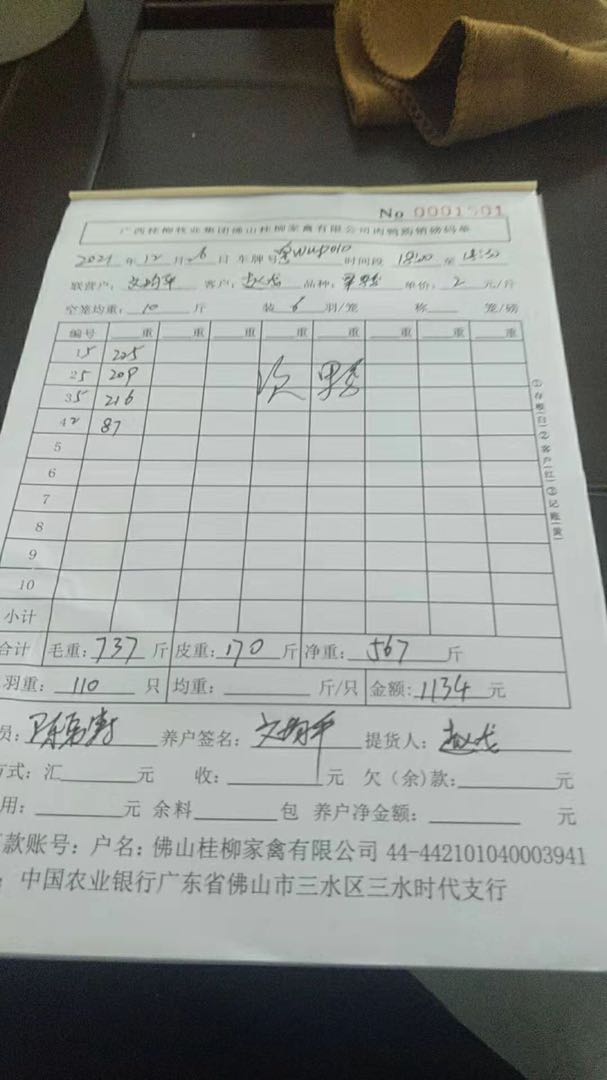 No 0001501
广西桂柳牧业集团佛山桂柳家禽有限公司肉鸭购销磅码单
2021年12月26日 车牌号 时间段 18:00 至
联营户: 文均平 客户: 赵龙 品种: 单价: 2 元/斤
空笼均重: 10 斤 装 6 羽/笼 称 笼/磅
编号 重 重 重 重 重 重 重 重
1 5 225
2 5 209
3 5 216
4 2 87
次 男
5
6
7
8
9
10
小计
合计 毛重: 737 斤 皮重: 170 斤 净重: 567 斤
羽重: 110 只 均重: 斤/只 金额: 1134 元
员: 养户签名: 文均平 提货人: 赵龙
方式: 汇 元 收: 元 欠(余)款: 元
用: 元 余料 包 养户净金额: 元
款账号: 户名: 佛山桂柳家禽有限公司 44-442101040003941
中国农业银行广东省佛山市三水区三水时代支行
①存根(白)②客户(红)③记账(黄)